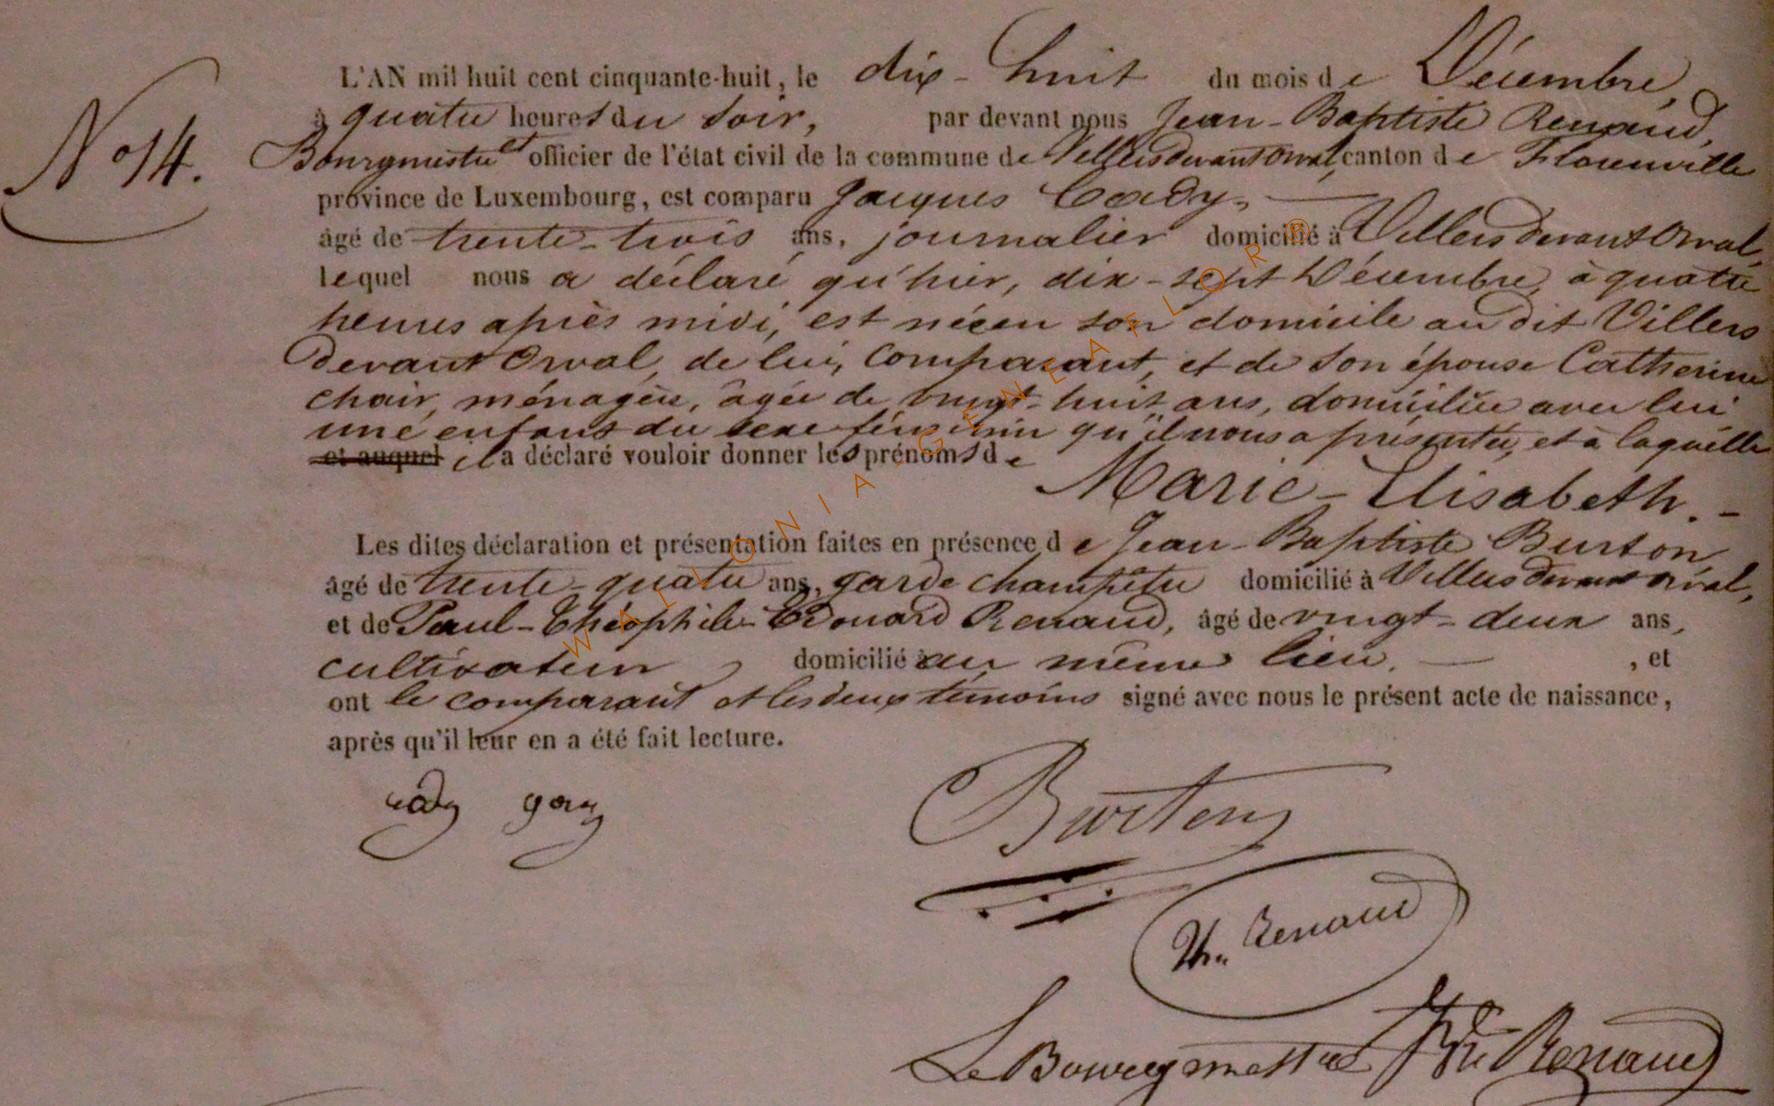 L'AN mil huit cent cinquante-huit, le dix-huit du mois de Décembre,
à quatre heures du soir, par devant nous Jean-Baptiste Renaud,
No 14. Bourgmestre et officier de l'état civil de la commune de Villers devant Orval, canton de Florenville
province de Luxembourg, est comparu Jacques Cady,
âgé de trente-trois ans, journalier domicilié à Villers devant Orval,
lequel nous a déclaré qu'hier, dix-sept Décembre, à quatre
heures après midi, est née en son domicile au dit Villers
devant Orval, de lui, comparant, et de son épouse Catherine
Choir, ménagère, âgée de vingt-huit ans, domiciliée avec lui
une enfant du sexe féminin qu'il nous a présentée, et à laquelle
et auquel il a déclaré vouloir donner les prénoms de
Marie-Elisabeth.-
Les dites déclaration et présentation faites en présence de Jean-Baptiste Burton,
âgé de trente-quatre ans, garde champêtre domicilié à Villers devant Orval,
et de Paul-Théophile-Edouard Renaud, âgé de vingt-deux ans,
cultivateur, domicilié au même lieu. , et
ont le comparant et les deux témoins signé avec nous le présent acte de naissance,
après qu'il leur en a été fait lecture.
cady Burton
Th. Renaud
Le Bourgmestre Renaud
WALLONIA-GENEAFLOR®